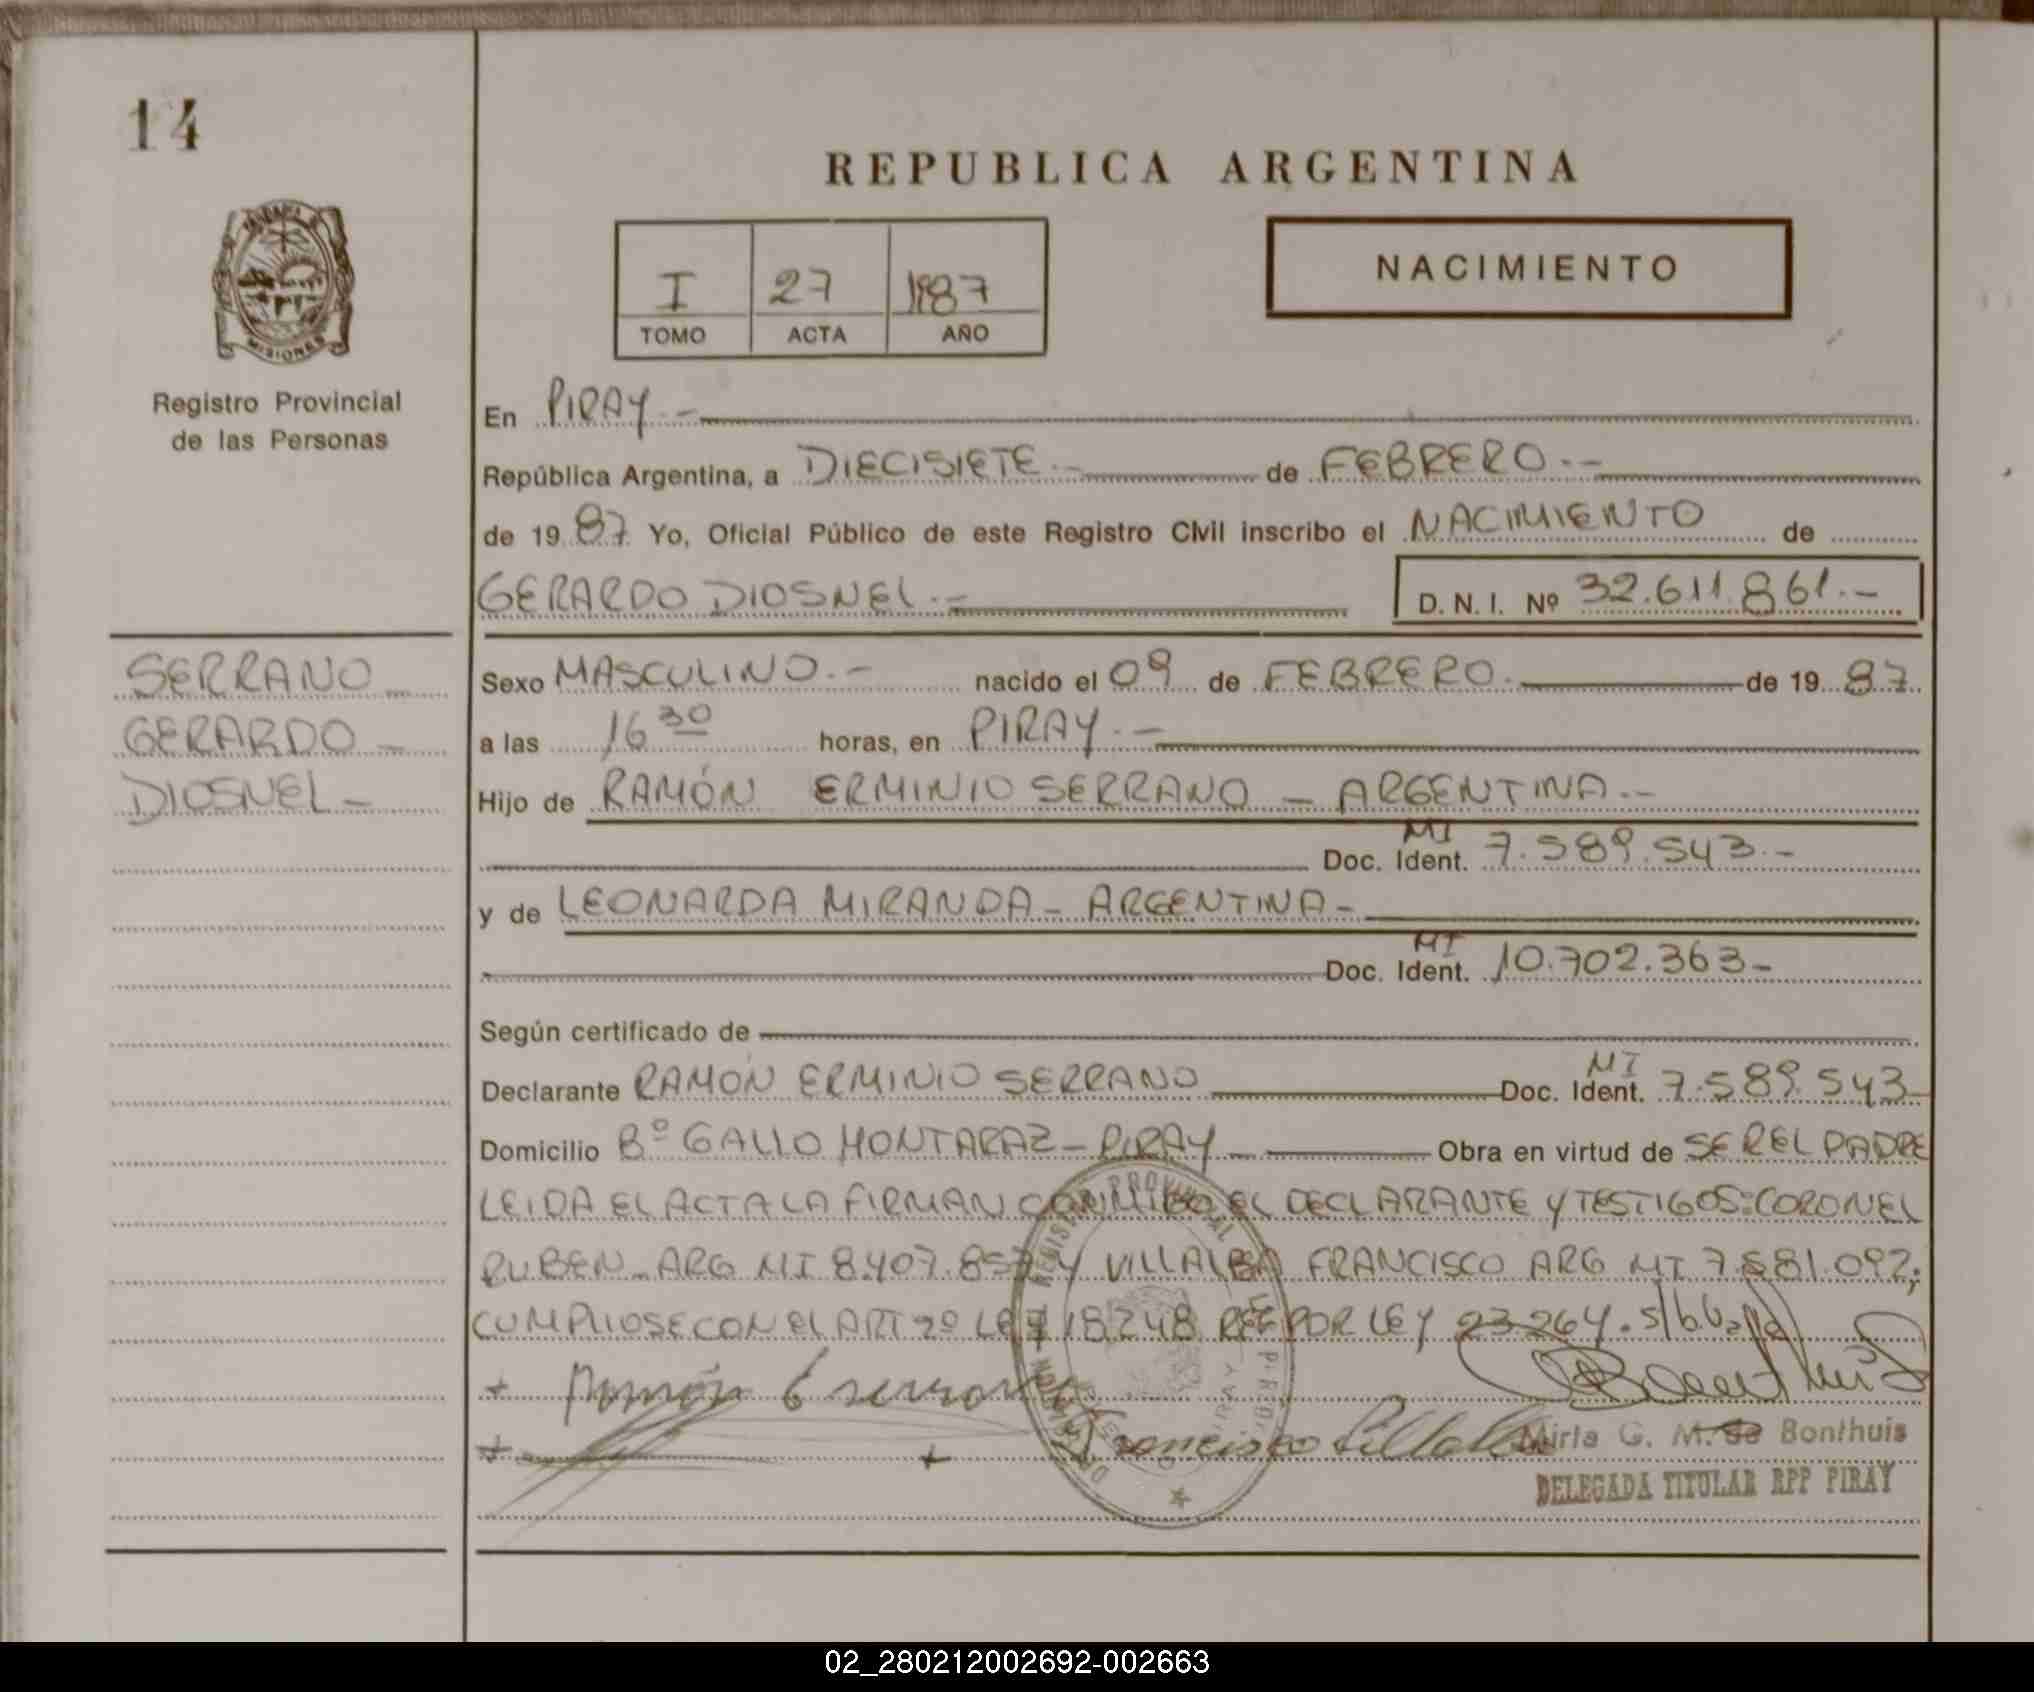 14
REPUBLICA ARGENTINA
MISIONES
Registro Provincial
de las Personas
I 27 1987
TOMO ACTA AÑO
NACIMIENTO
En PIRAY.-
República Argentina, a DIECISIETE.- de FEBRERO.-
de 1987 Yo, Oficial Público de este Registro Civil inscribo el NACIMIENTO de
GERARDO DIOSNEL.- D.N.I. Nº 32.611.861.-
SERRANO
GERARDO -
DIOSNEL -
Sexo MASCULINO.- nacido el 09 de FEBRERO. de 1987.
a las 16 30 horas, en PIRAY.-
Hijo de RAMÓN ERMINIO SERRANO - ARGENTINA.-
MI
Doc. Ident. 7.589.543.-
y de LEONARDA MIRANDA - ARGENTINA -
MI
Doc. Ident. 10.702.363-
Según certificado de
MI
Declarante RAMÓN ERMINIO SERRANO Doc. Ident. 7.589.543-
Domicilio Bº GALLO MONTARAZ - PIRAY - Obra en virtud de SER EL PADRE
LEIDA EL ACTA LA FIRMAN CONMIGO EL DECLARANTE Y TESTIGOS: CORONEL
RUBEN - ARG MI 8.407.857 Y VILLALBA FRANCISCO ARG MI 7.581.092;
CUMPLIOSE CON EL ART 2º LEY 18248 POR LEY 23264.
+ Ramón E serrano
+ + Francisco Villalba
Mirla G. M. de Bonthuis
DELEGADA TITULAR RPP PIRAY
02_280212002692-002663